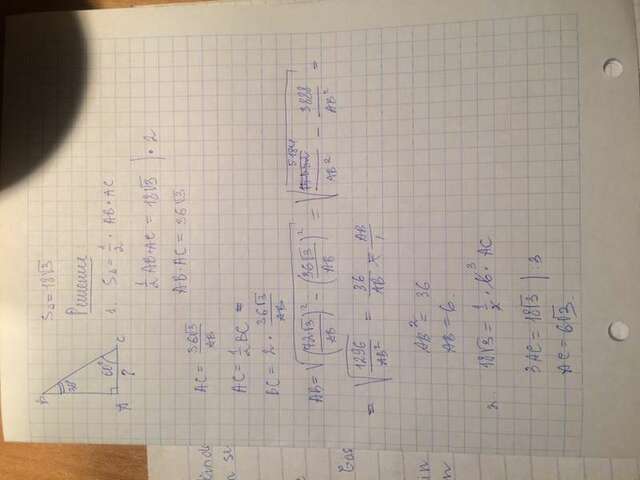 S_Δ = 18√3
Решение
B
30°
60°
A
?
C
1. S_Δ = 1/2 · AB · AC
1/2 AB·AC = 18√3 | · 2
AB·AC = 36√3
AC = 36√3/AB
AC = 1/2 BC =
BC = 2 · 36√3/AB
AB = √((72√3/AB)² − (36√3/AB)²) = √(5184/AB² − 3888/AB²) =
= √(1296/AB²) = 36/AB = AB/1
AB² = 36
AB = 6.
2. 18√3 = 1/2 · 6 3 · AC
3AC = 18√3 | :3
AC = 6√3.
in